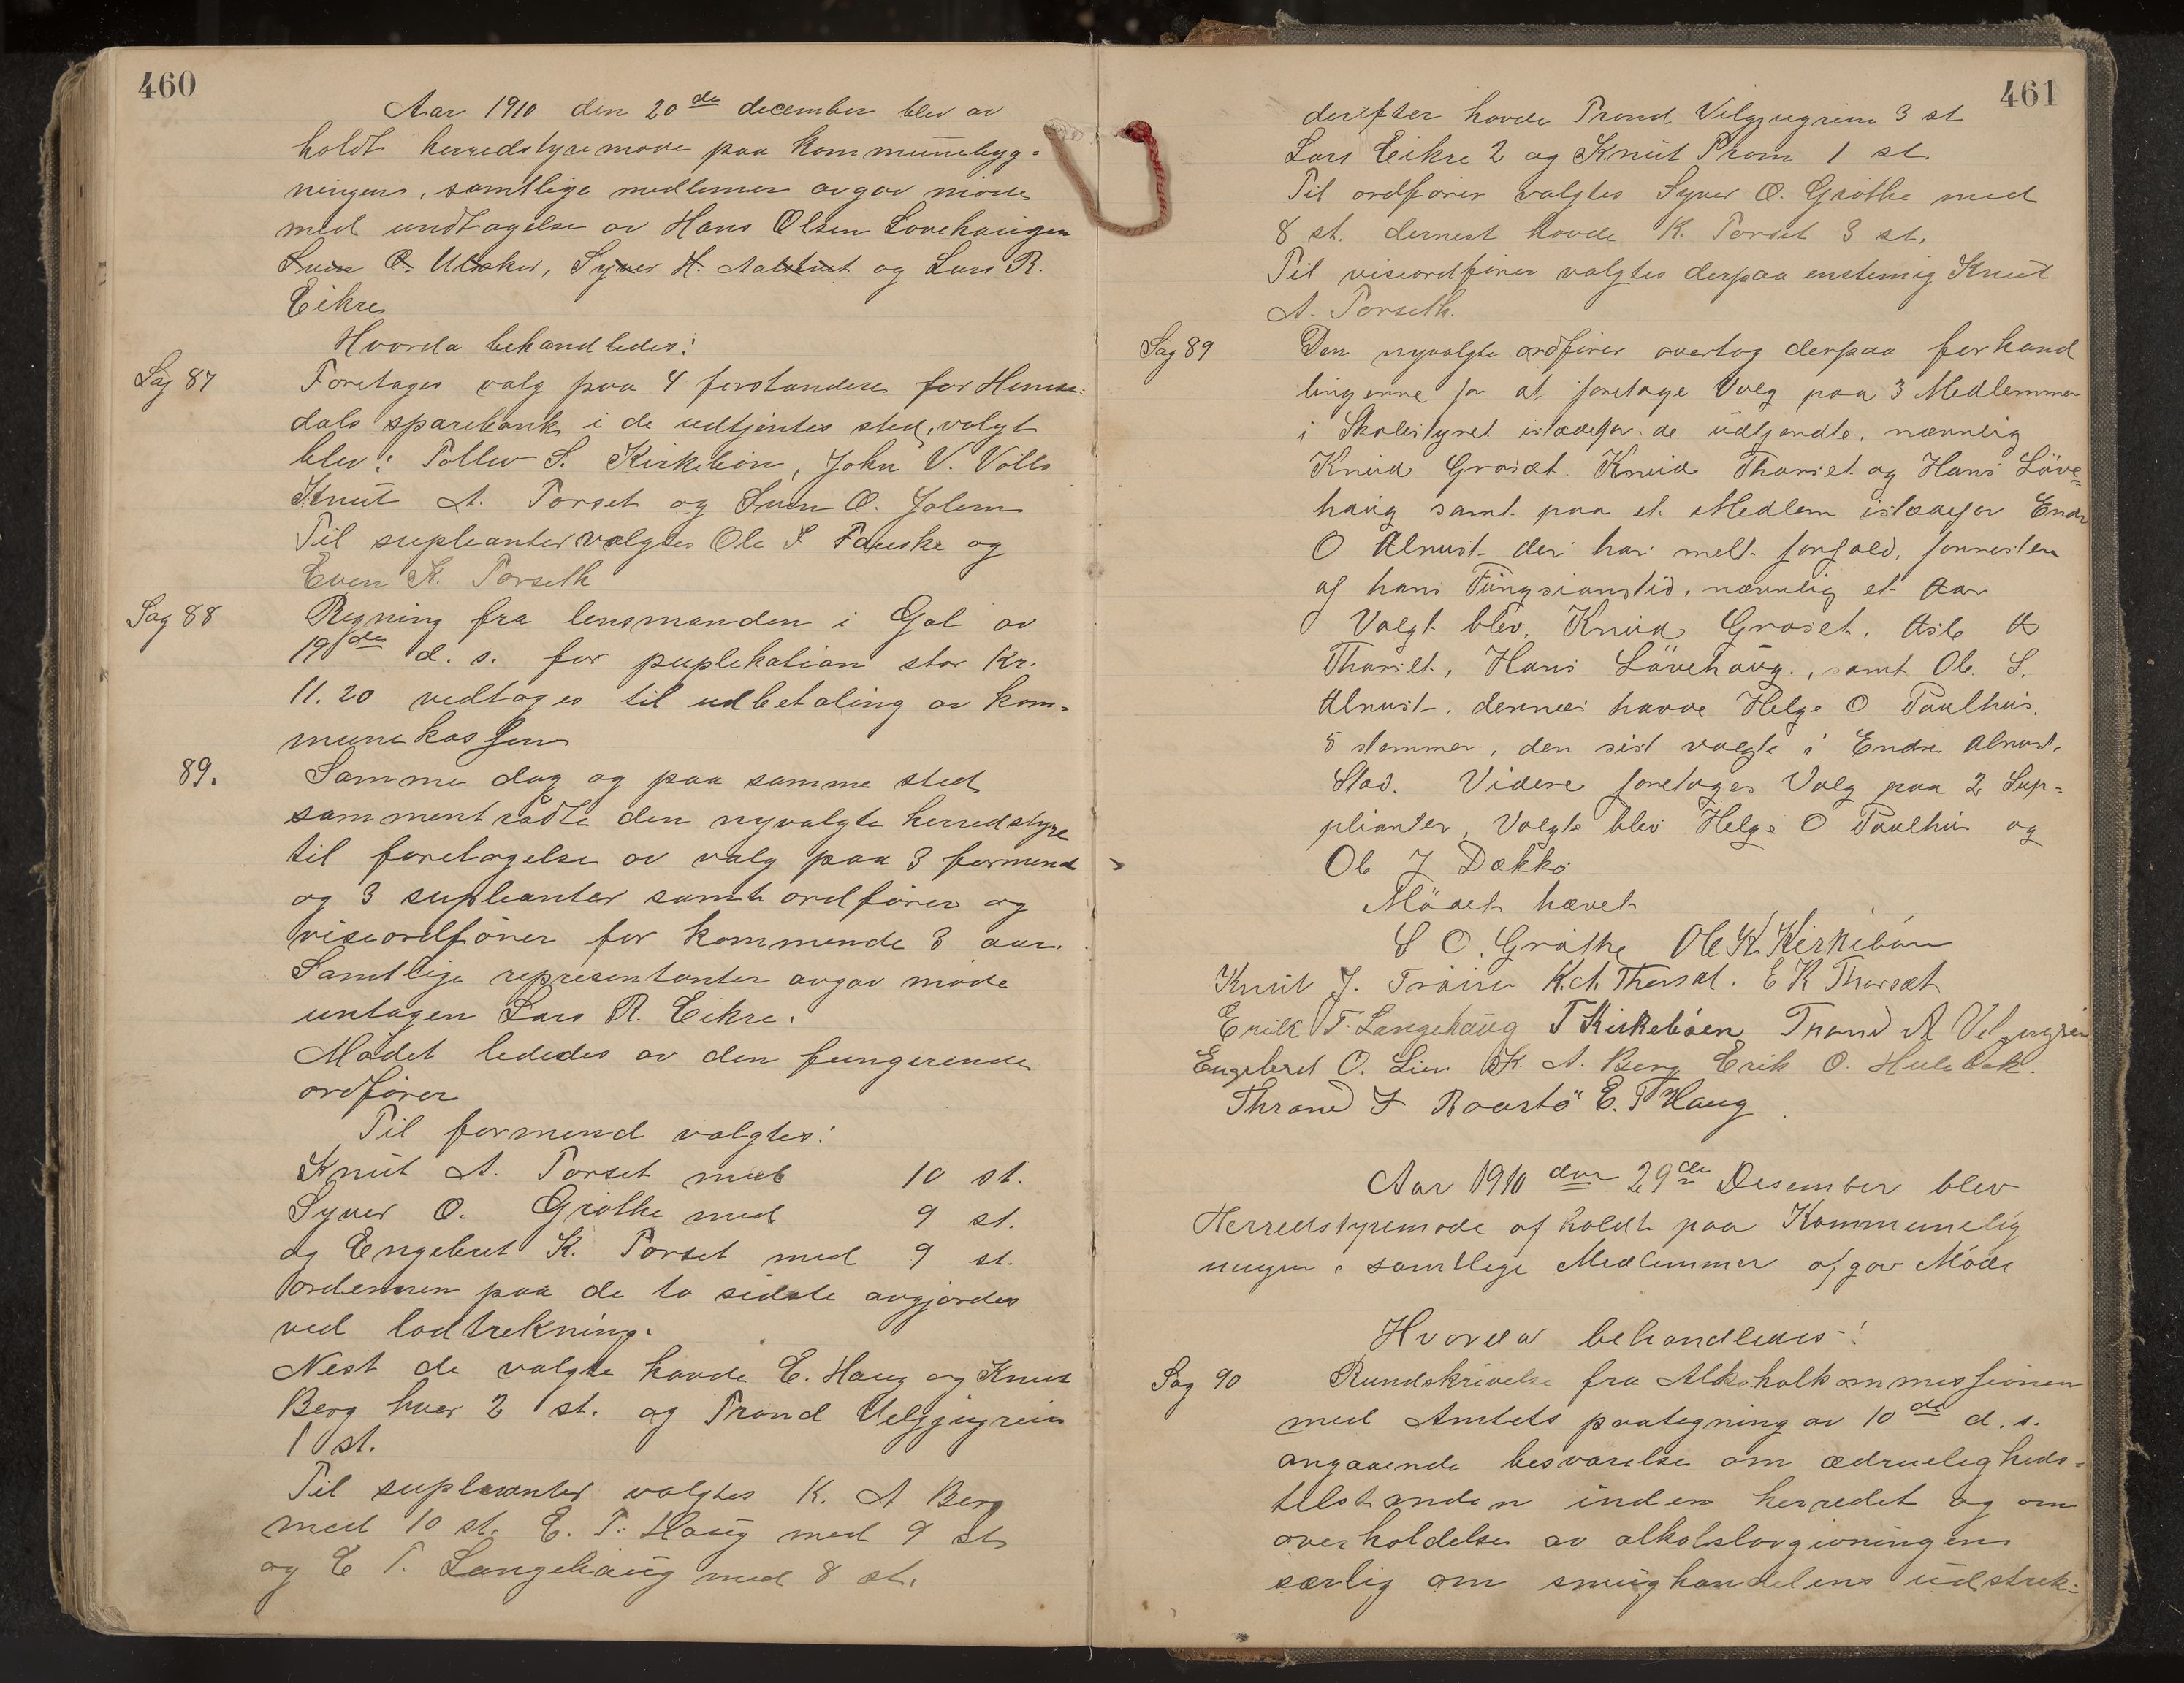 460
Aar 1910 den 20de december blev av
holdt herredstyremøve paa kommunebyg=
ningen, samtlige medlemer avgav møde
med undtagelse av Hans Olsen Løvehaugen
Sven O. Ulsker, Syver H. og Lars R.
Eikre
Hvorda behandledes:
Sag 87
Foretages valg paa 4 forstandere for Hemse=
dals sparebank i de udtjentes sted, valgt
blev: Tollev S. Kirkebøn, John V. Vølls
Knut A. Torset og Sven O. Jolem
Til supleanter valgtes Ole S Fauske og
Even K. Torseth
Sag 88
Regning fra lensmanden i Gol av
19de d. s. for puplikation stor Kr.
11.20 vedtages til udbetaling av kom=
munekassen
89.
Samme dag og paa samme sted
sammentrådte den nyvalgte herredstyre
til foretagelse av valg paa 3 formend
og 3 supleanter samt ordfører og
viseordfører for kommende 3 aar.
Samtlige representanter avgav møde
untagen Lars R. Eikre.
Mødet lededes av den fungerende
ordfører
Til formend valgtes:
Knut A. Torset med 10 st.
Syver O. Grøthe med 9 st.
og Engebret K. Torset med 9 st.
ordennen paa de to sidste avgjordes
ved lodtrekning.
Nest de valgte havde E. Haug og Knut
Berg hver 2 st. og Trond Velgjugrein
1 st.
Til supleanter valgtes K. A Berg
med 10 st. E. T. Haug med 9 st
og E T. Langehaug med 8 st.
461
derefter havde Trond Vilgjugrein 3 st
Lars Eikre 2 og Knut Trøm 1 st.
Til ordfører valgtes Syver O. Grøthe med
8 st. dernest havde K. Torset 3 st.
Til viseordfører valgtes derpaa enstemig Knut
A. Torseth.
Sag 89
Den nyvalgte ordfører overtog derpaa forhand
lingerne for at foretage Valg paa 3 Medlemmer
i Skolestyret istædefor de udtjendte, nævnlig
Knud Grøset Knud Thorset og Hans Löve=
haug samt paa et Medlem istædefor Endr
O Alrust der har melt forfald, forresten
af hans Fungsionstid, nævnlig et Aar
Valgt blev, Knud Grøset, Asle A
Thorset, Hans Lövehaug, samt Ole S.
Alrust, dernæs havve Helge O Taulhus
5 stemmer, den sist valgte i Endre Alrust.
Stad. Videre foretages Valg paa 2 Sup=
plianter, Valgte blev Helge O Taulhus og
Ole J Dækko
Mödet hævet
S O. Grøthe Ole K. Kirkebøn
Knut J. Trøim K. A. Thorset. E K Thorset
Erik T. Langehaug T Kirkebøen Trond A Velgugrein
Engebret O. Lien K. A. Berg Erik O. Hulebak.
Throne J Roastö E. T Haug
Aar 1910 den 29de Desember blev
Herredstyremøde afholdt paa Kommunebÿg
ningen samtlige Medlemmer afgav Møde
Hvorda behandledes:
Sag 90
Rundskrivelse fra Alkoholkommissjonen
med Amtets paategning av 10de d. s.
angaaende besvarelse om ædrueligheds=
tilstanden inden herredet og om
overholdelse av alkohollovgivningen
særlig om smughandelens udstræk=